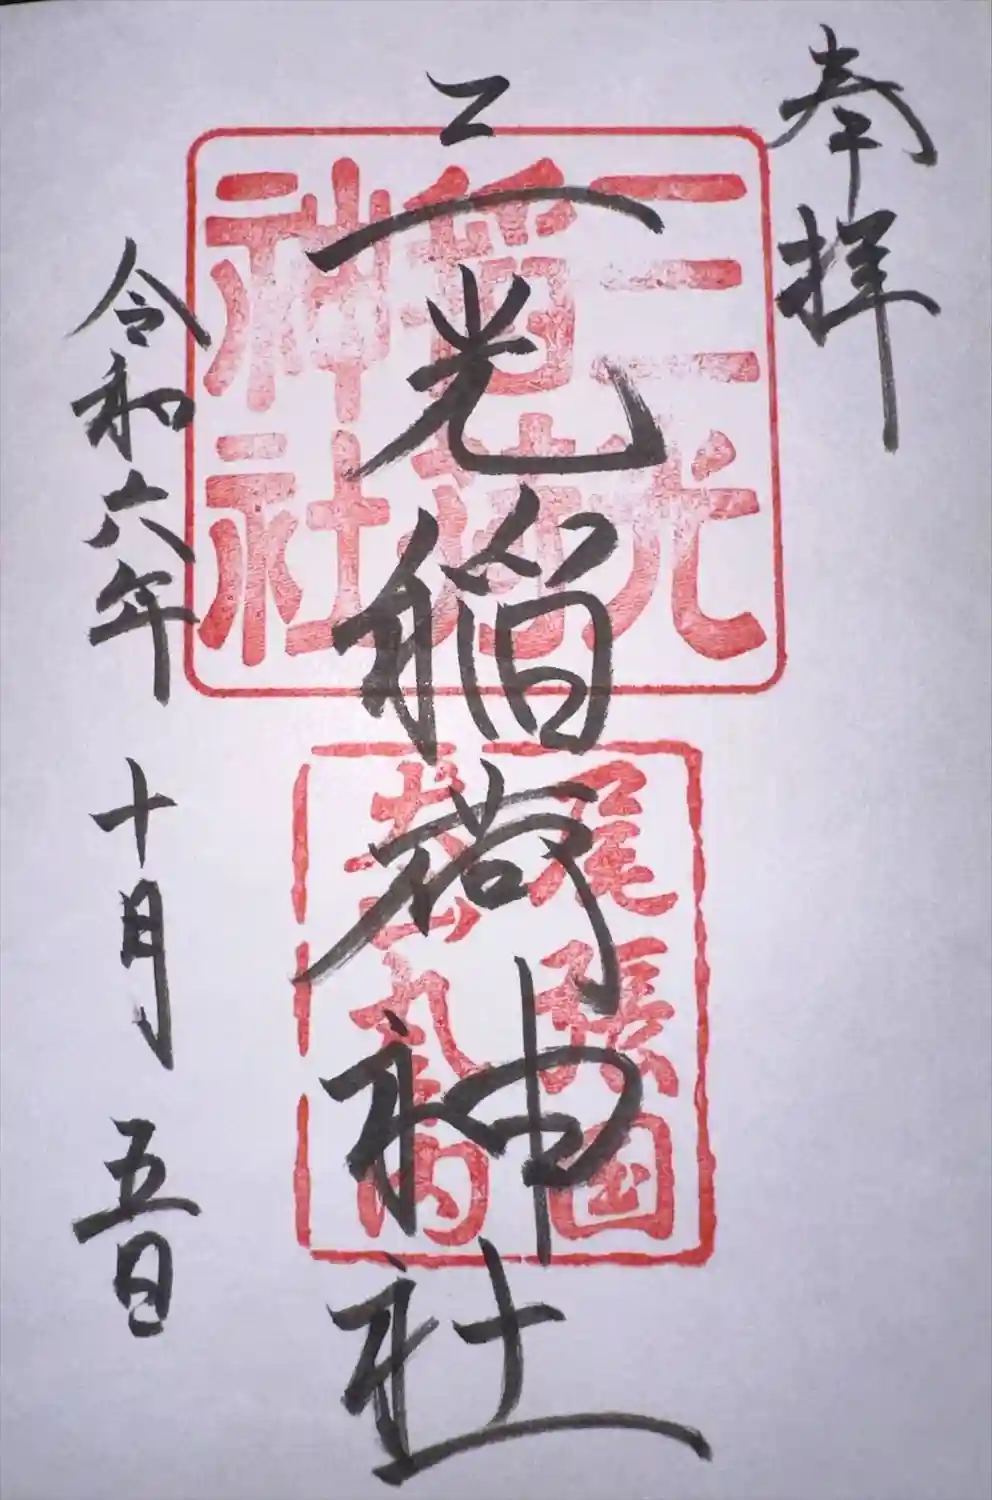 奉拝
三光稲荷神社
令和六年 十月 五日
三光
稲荷
神社
尾張国
犬山丸の内